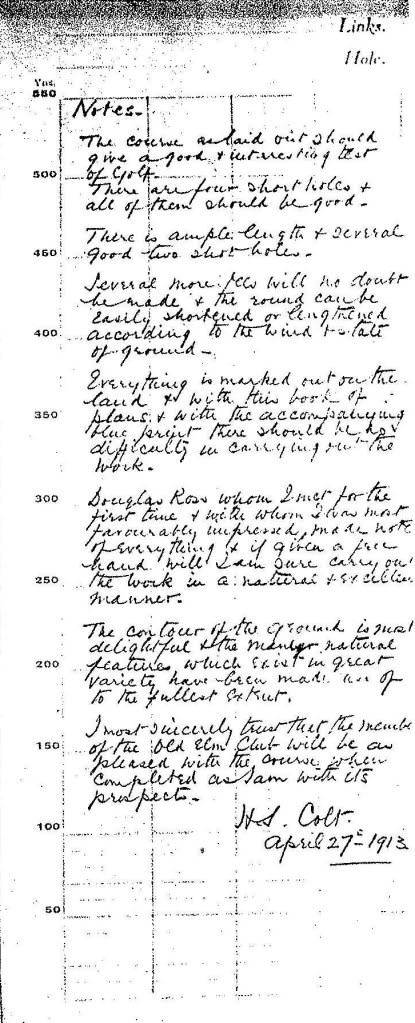 Links.
Hole.
Yds.
550
Notes.
The course as laid out should
give a good & interesting test
of Golf.
500
There are four short holes &
all of them should be good.
There is ample length & several
450
good two shot holes.
Several more tees will no doubt
be made & the round can be
easily shortened or lengthened
400
according to the wind & state
of ground.
Everything is marked out on the
land & with this book of
350
plans & with the accompanying
blue print there should be no
difficulty in carrying out the
work.
300
Douglas Ross whom I met for the
first time & with whom I was most
favourably impressed, made note
of everything & if given a free
250
hand will I am sure carry out
the work in a natural &
manner.
The contour of the ground is most
delightful & the natural
200
features which exist in great
variety have been made use of
to the fullest extent.
I most sincerely trust that the
150
of the Old Elm Club will be as
pleased with the course when
completed as I am with its
prospects.
100
H.S. Colt.
April 27th 1913
50